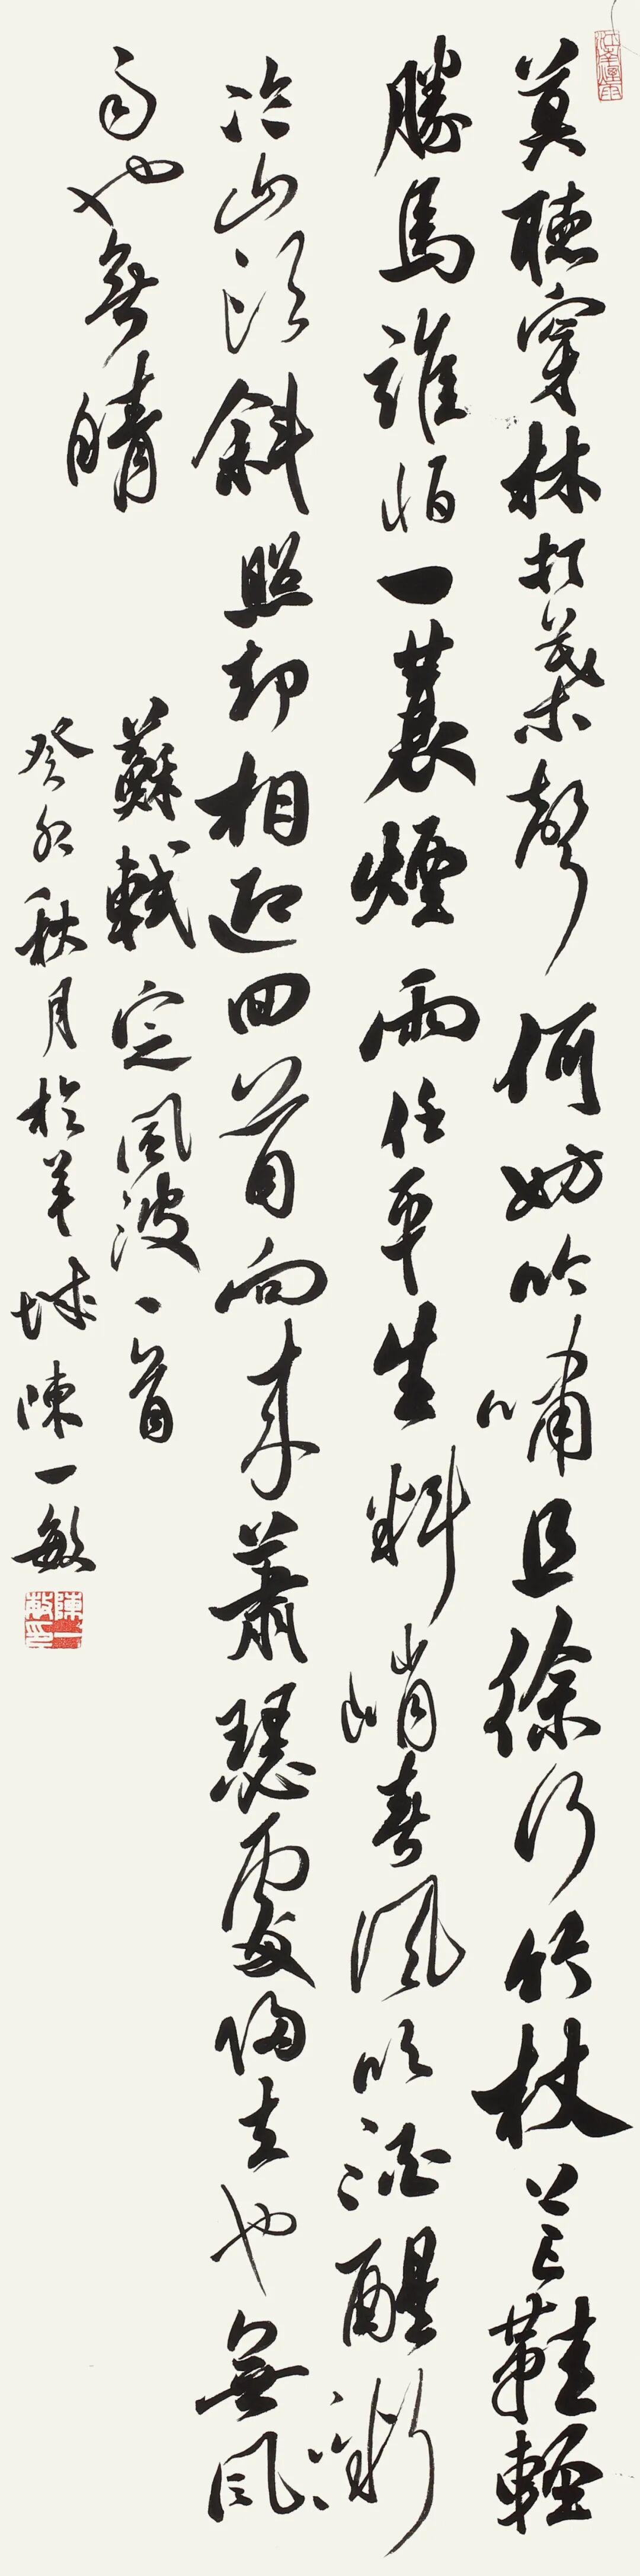 江南煙雨
莫聽穿林打葉聲何妨吟嘯且徐行竹杖芒鞋輕
勝馬誰怕一蓑煙雨任平生料峭春風吹酒醒微
冷山頭斜照却相迎回首向來蕭瑟處歸去也無風
雨也無晴
蘇軾定風波一首
癸卯秋月於羊城陳一敏
陳一敏印